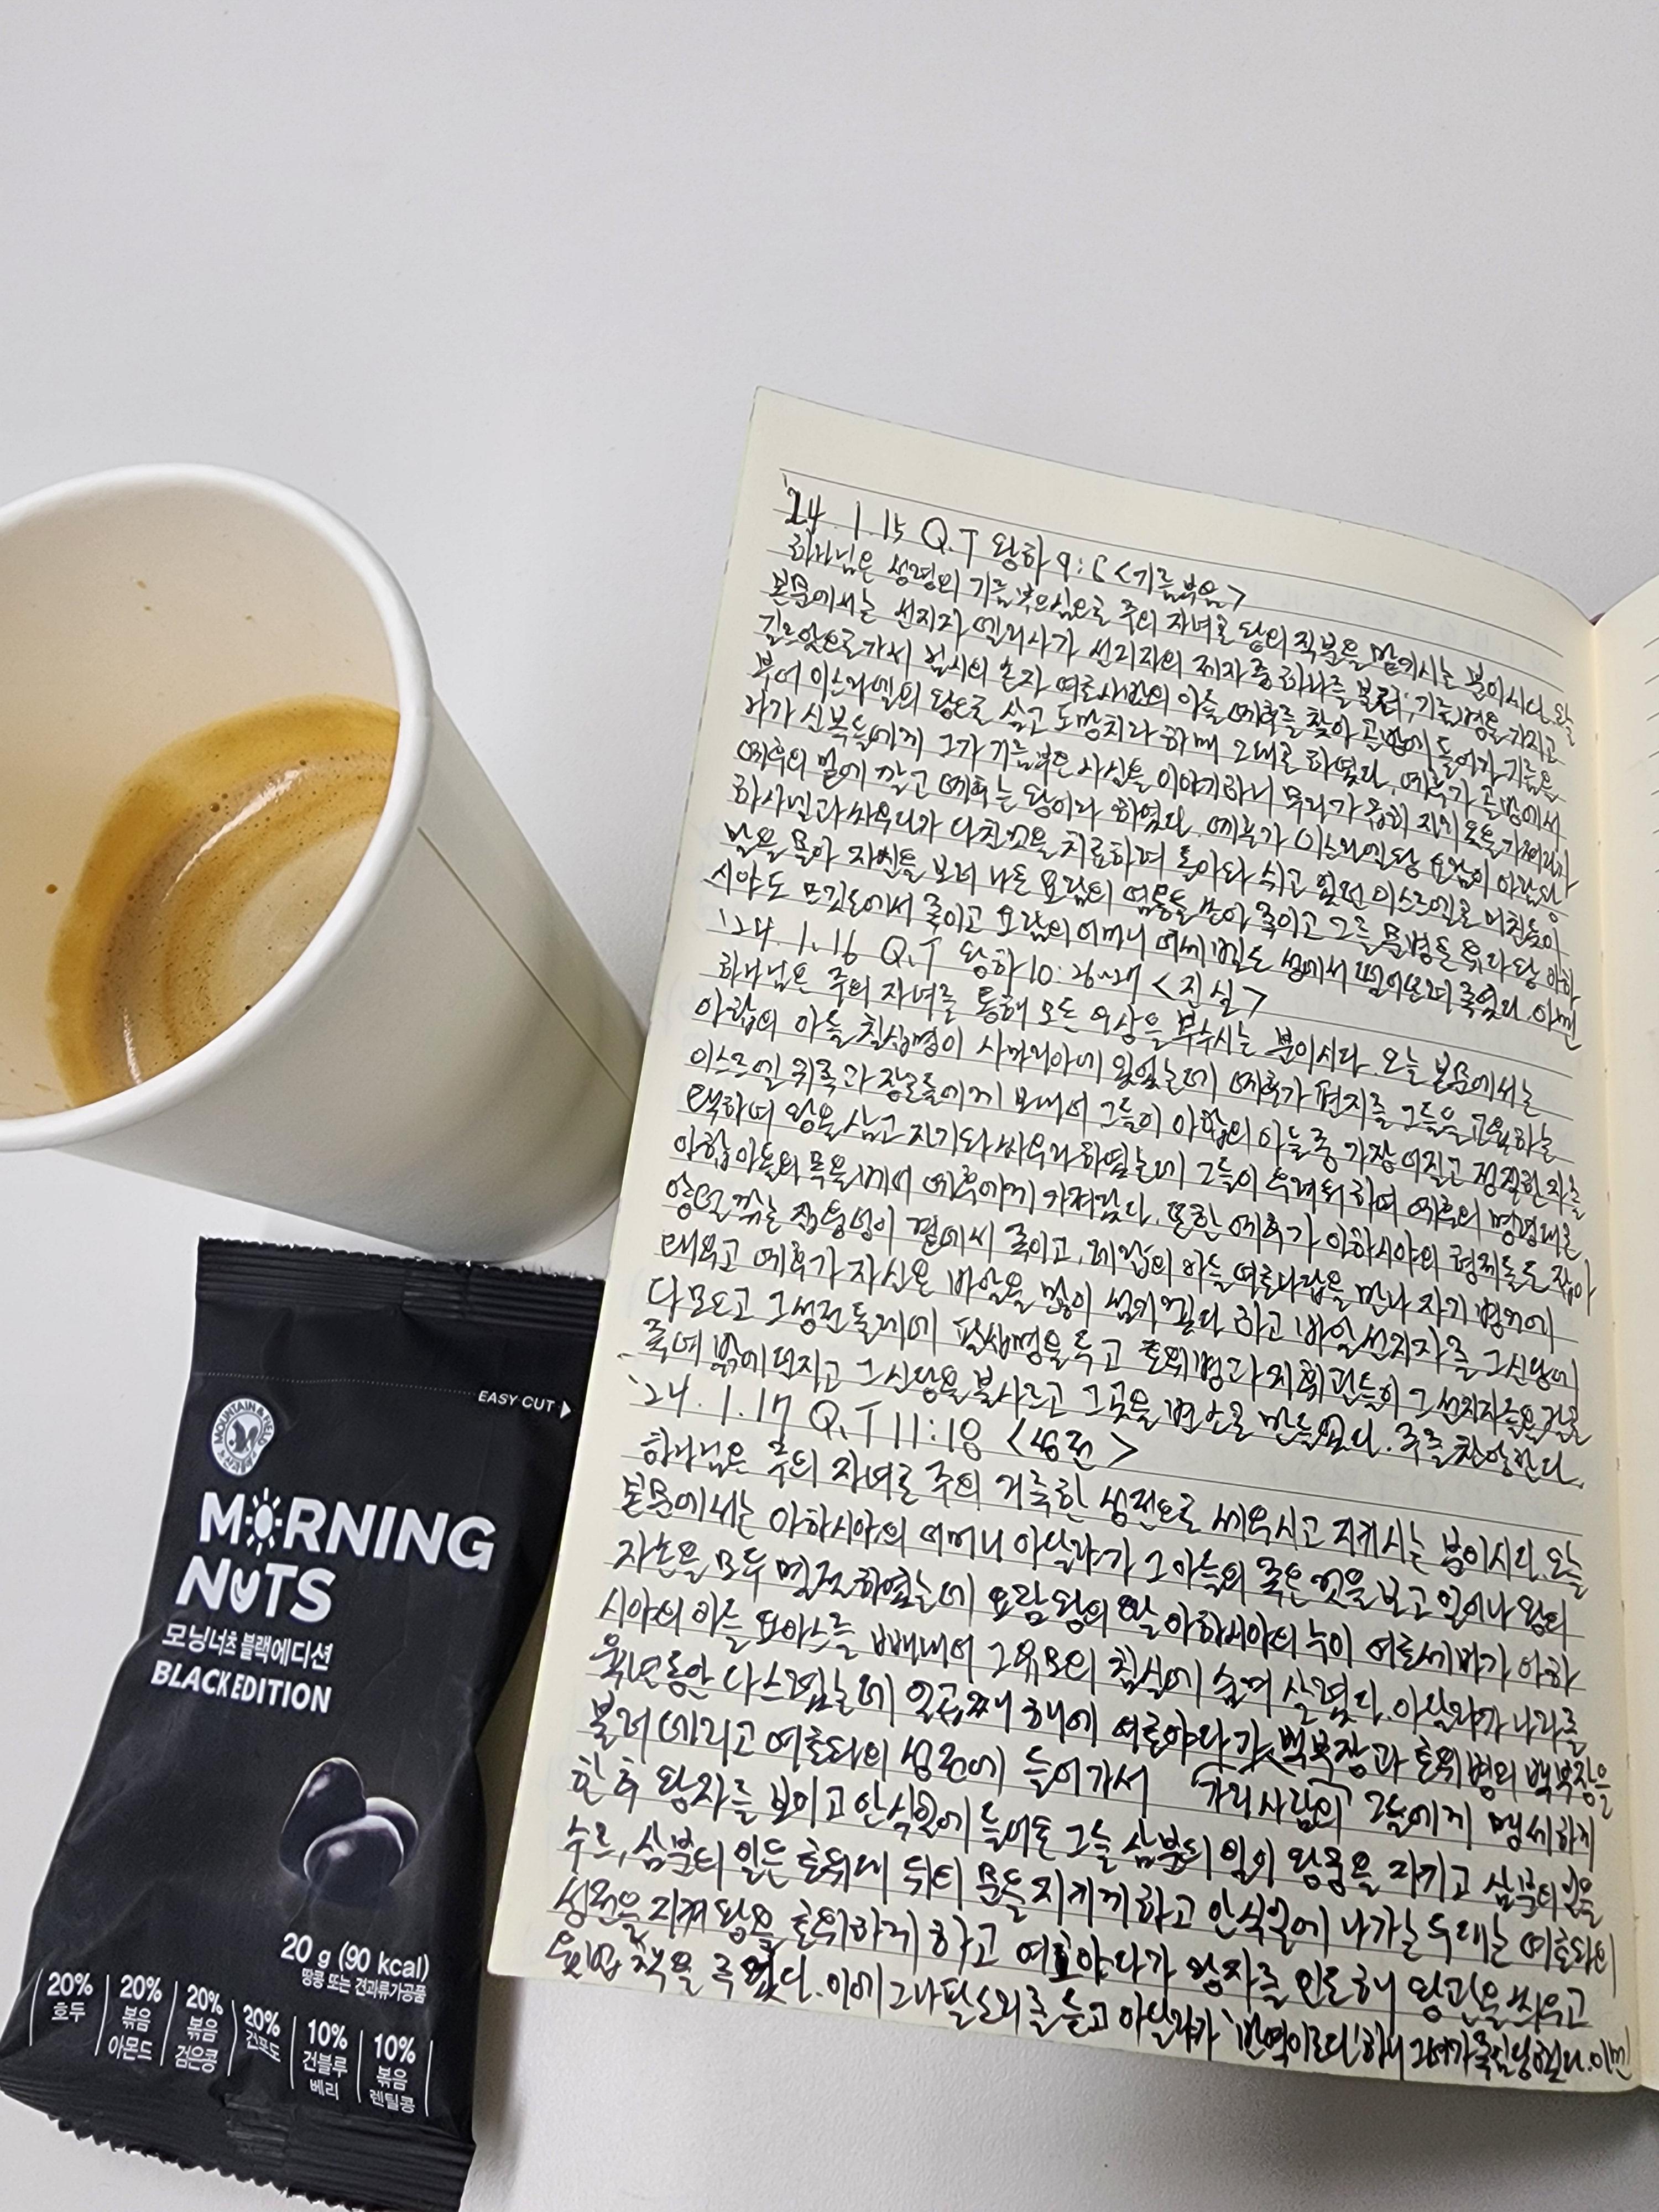 '24. 1. 15 Q.T 왕하 9:6 <기름부음>
하나님은 성령의 기름부으심으로 주의 자녀로 왕의 직분을 맡기시는 분이시다. 오늘
본문에서는 선지자 엘리사가 선지자의 제자 중 하나를 불러, 기름병을 가지고
길르앗으로 가서 님시의 손자 여호사밧의 아들 예후를 찾아 골방에 들어가 기름을
부어 이스라엘의 왕으로 삼고 도망치라 하매 그대로 하였다. 예후가 골방에서
나가 신복들에게 그가 기름부은 사실을 이야기하니 무리가 급히 자기 옷을 가져다가
예후의 밑에 깔고 예후는 왕이라 하였다. 예후가 이스라엘 왕 요람이 아람왕
하사엘과 싸우다가 다친것을 치료하며 돌아와 쉬고 있던 이스르엘로 미친듯이
말을 몰아 자신을 보러 나온 요람의 염통을 쏘아 죽이고 그를 문병온 유다 왕 아하
시야도 므깃도에서 죽이고 요람의 어머니 이세벨도 성에서 떨어뜨려 죽였다. 아멘
'24. 1. 16 Q.T 왕하 10:26~27 <진실>
하나님은 주의 자녀를 통해 모든 우상을 부수시는 분이시다. 오늘 본문에서는
아합의 아들 칠십명이 사마리아에 있었는데 예후가 편지를 그들을 교육하는
이스르엘 귀족과 장로들에게 보내어 그들이 아합의 아들 중 가장 어질고 정직한 자를
택하여 왕을 삼고 자기와 싸우라 하였는데 그들이 두려워하여 예후의 명령대로
아합 아들의 목을 베어 예후에게 가져갔다. 또한 예후가 아하시야의 형제들도 잡아
양털 깎는 집 웅덩이 곁에서 죽이고, 레갑의 아들 여호나답을 만나 자기 병거에
태우고 예후가 자신은 바알을 많이 섬기겠다 하고 바알 선지자를 그 신당에
다 모으고 그 성전 둘레에 팔십명을 두고 호위병과 지휘관들이 그 선지자들을 칼로
죽여 밖에 던지고 그 신당을 불사르고 그곳을 변소로 만들었다. 주를 찬양한다.
'24. 1. 17 Q.T 11:18 <성전>
하나님은 주의 자녀로 주의 거룩한 성전으로 세우시고 지키시는 분이시다. 오늘
본문에서는 아하시야의 어머니 아달랴가 그 아들의 죽은 것을 보고 일어나 왕의
자손을 모두 멸절하였는데 요람왕의 딸 아하시야의 누이 여호세바가 아하
시야의 아들 요아스를 빼내어 그 유모의 침실에 숨겨 살렸다. 아달랴가 나라를
육년동안 다스렸는데 일곱째 해에 여호야다가 백부장과 호위병의 백부장을
불러 데리고 여호와의 성전에 들어가서 가리 사람의 그들에게 맹세하게
한 후 왕자를 보이고 안식일에 들어온 그들 삼분의 일이 왕궁을 지키고 삼분의 일은
수르, 삼분의 일은 호위대 뒤의 문을 지키게 하고 안식일에 나가는 두 대는 여호와의
성전을 지켜 왕을 호위하게 하고 여호야다가 왕자를 인도해 왕관을 씌우고
율법책을 주었다. 이에 그 나팔소리를 듣고 아달랴가 '반역이로다' 하니 그녀가 죽임당했다. 아멘
EASY CUT
MOUNTAIN & FIELD
MORNING
NUTS
모닝너츠 블랙에디션
BLACK EDITION
20 g (90 kcal)
땅콩 또는 견과류가공품
20% 호두
20% 볶음 아몬드
20% 볶음 검은콩
20% 건포도
10% 건블루베리
10% 볶음 렌틸콩